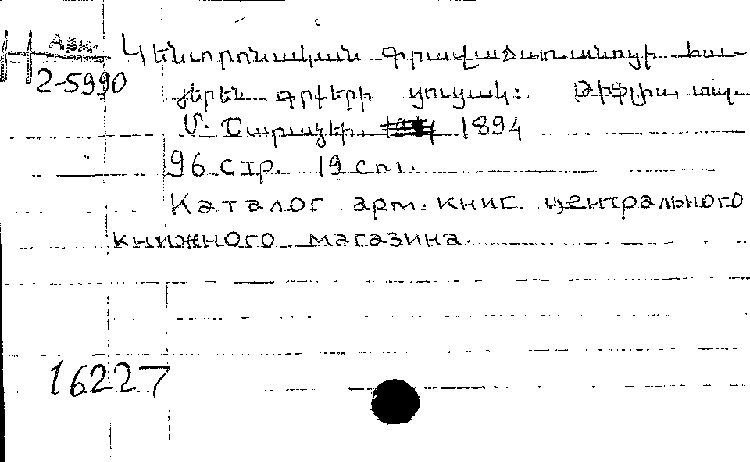 Арм. Կենտրոնական գրավաճառանոցի հա-
2-5990 յերեն գրքերի ցուցակ: Թիֆլիս, տպ.
Մ. Շարաձեի. 1894
96 стр. 19 см.
Каталог арм. книг. центрального
книжного магазина
16227